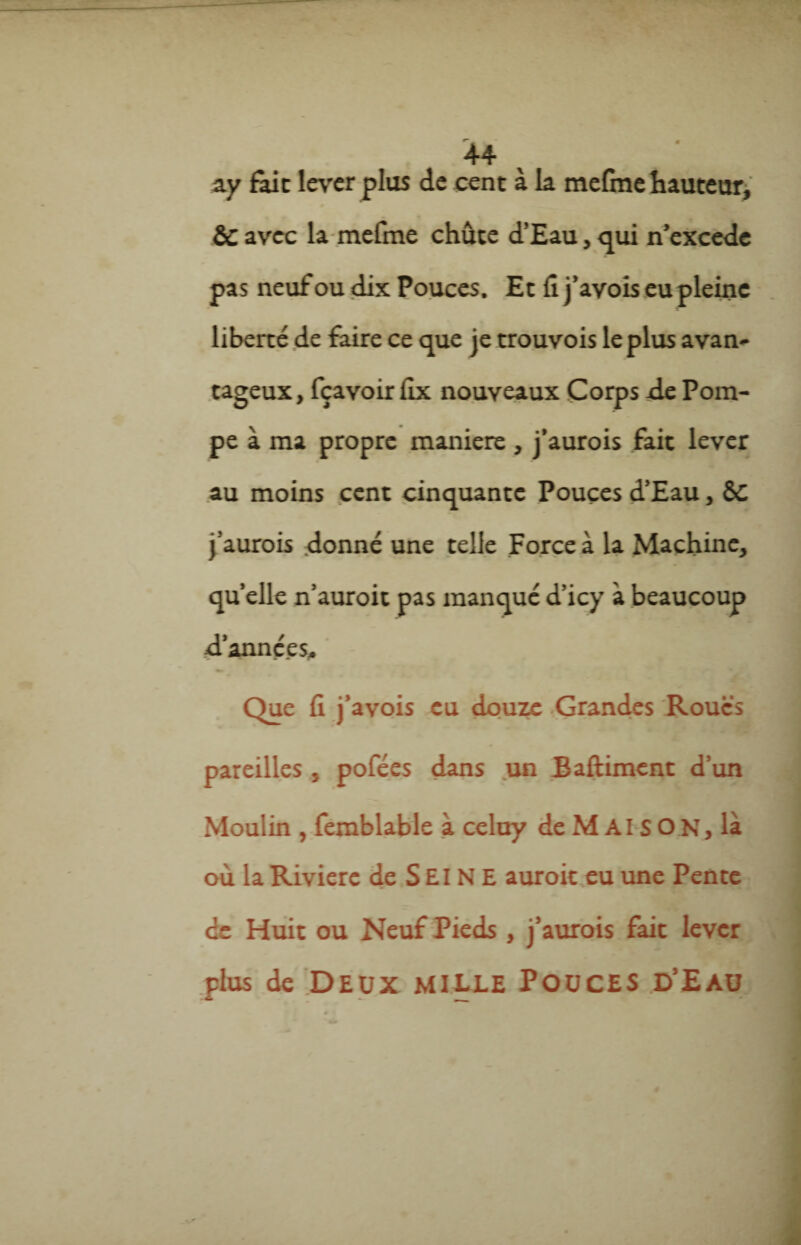 44
ay fait lever plus de cent à la meſme hauteur,
& avec la meſme chûte d'Eau, qui n'excede
pas neuf ou dix Pouces. Et ſi j'avois eu pleine
liberté de faire ce que je trouvois le plus avan-
tageux, ſçavoir ſix nouveaux Corps de Pom-
pe à ma propre maniere, j'aurois fait lever
au moins cent cinquante Pouces d'Eau, &
j'aurois donné une telle Force à la Machine,
qu'elle n'auroit pas manqué d'icy à beaucoup
d'années.
Que ſi j'avois eu douze Grandes Rouës
pareilles, poſées dans un Baſtiment d'un
Moulin, ſemblable à celuy de MAISON, là
où la Riviere de SEINE auroit eu une Pente
de Huit ou Neuf Pieds, j'aurois fait lever
plus de DEUX MILLE POUCES D'EAU